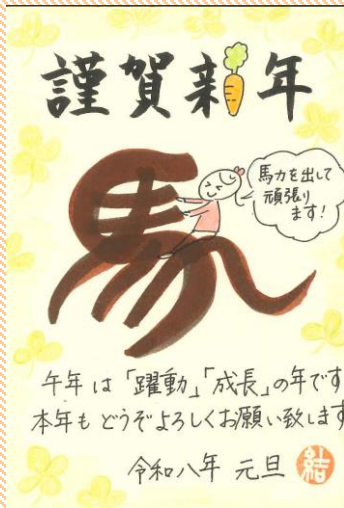 謹賀新年
馬
馬力を出して
頑張り
ます!
午年は「躍動」「成長」の年です
本年もどうぞよろしくお願い致します
令和八年 元旦 結